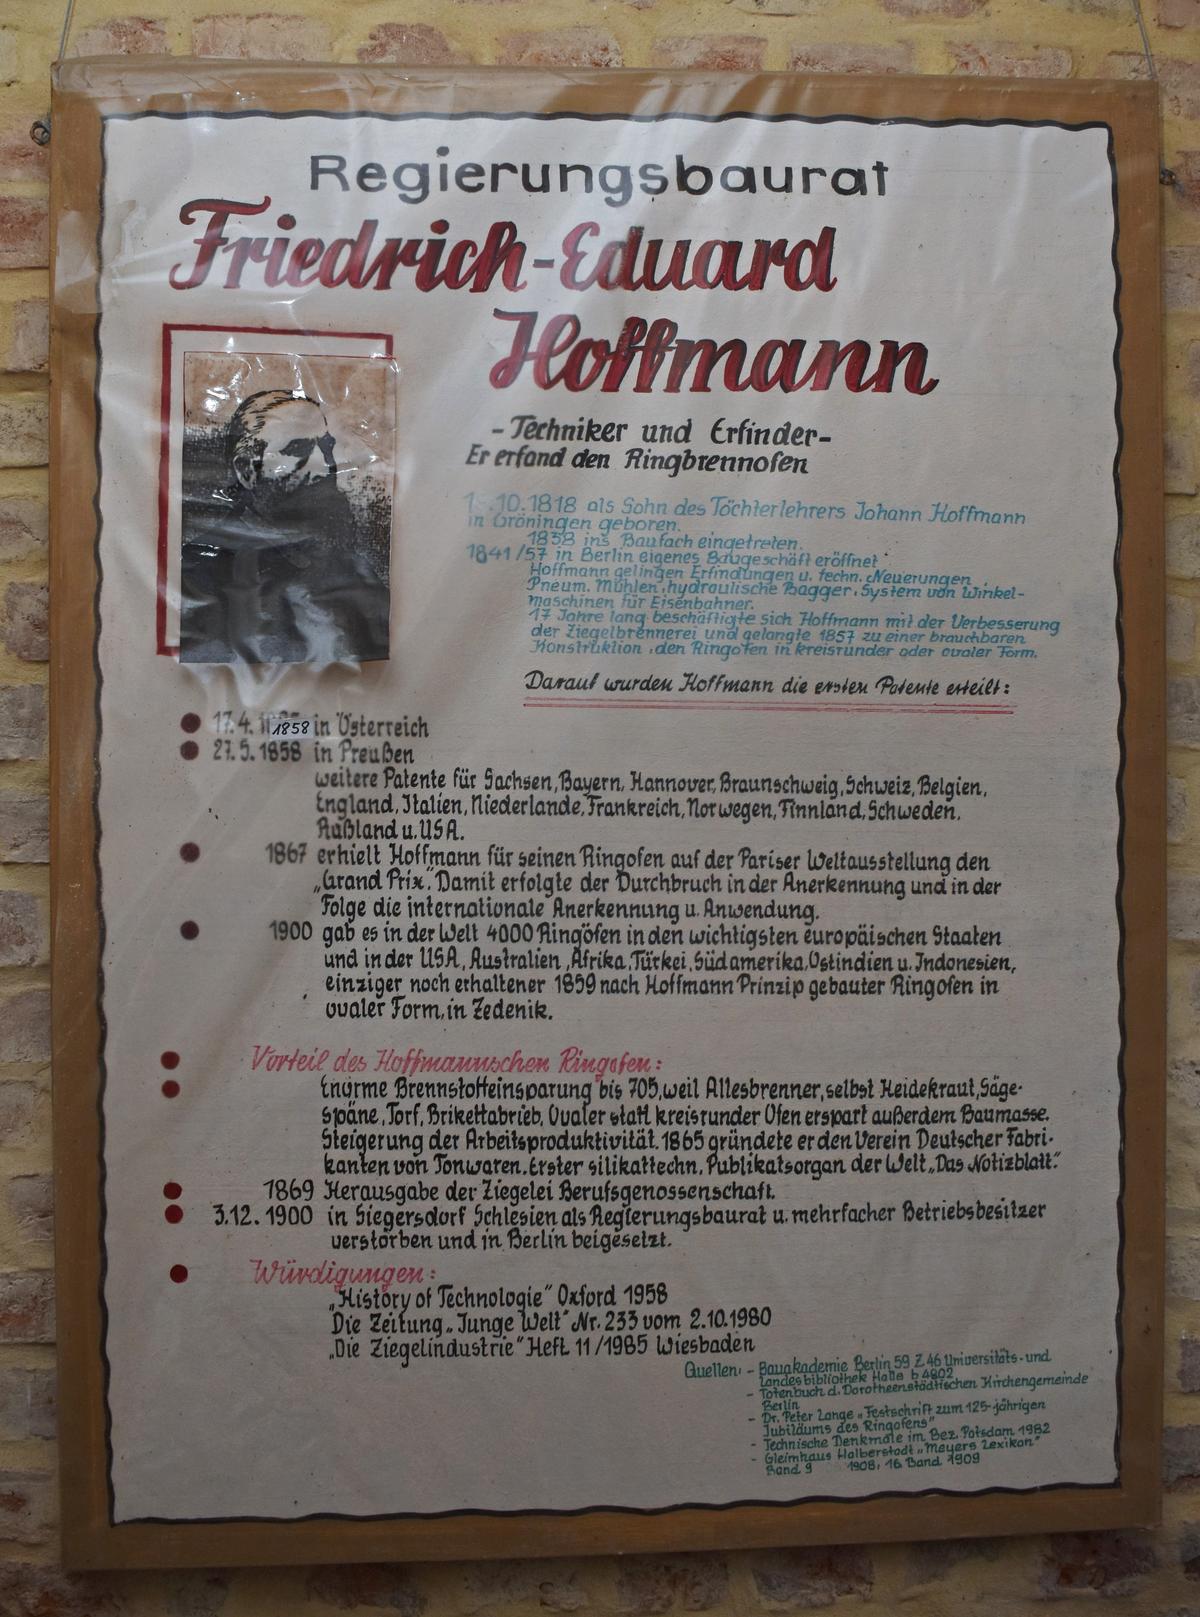 Regierungsbaurat
Friedrich-Eduard
Hoffmann
-Techniker und Erfinder-
Er erfand den Ringbrennofen
.10.1818 als Sohn des Töchterlehrers Johann Hoffmann
in Gröningen geboren.
1838 ins Baufach eingetreten.
1841/57 in Berlin eigenes Baugeschäft eröffnet
Hoffmann gelingen Erfindungen u. techn. Neuerungen
Pneum. Mühlen, hydraulische Bagger, System von Winkel-
maschinen für Eisenbahner.
17 Jahre lang beschäftigte sich Hoffmann mit der Verbesserung
der Ziegelbrennerei und gelangte 1857 zu einer brauchbaren
Konstruktion, den Ringofen in kreisrunder oder ovaler Form.
Darauf wurden Hoffmann die ersten Patente erteilt:
17.4. 1858 in Österreich
27.5.1858 in Preußen
weitere Patente für Sachsen, Bayern, Hannover, Braunschweig, Schweiz, Belgien,
England, Italien, Niederlande, Frankreich, Norwegen, Finnland, Schweden,
Rußland u. USA.
1867 erhielt Hoffmann für seinen Ringofen auf der Pariser Weltausstellung den
„Grand Prix". Damit erfolgte der Durchbruch in der Anerkennung und in der
Folge die internationale Anerkennung u. Anwendung.
1900 gab es in der Welt 4000 Ringöfen in den wichtigsten europäischen Staaten
und in der USA, Australien, Afrika, Türkei, Südamerika, Ostindien u. Indonesien,
einziger noch erhaltener 1859 nach Hoffmann Prinzip gebauter Ringofen in
ovaler Form, in Zedenik.
Vorteil des Hoffmannschen Ringofen:
Enorme Brennstoffeinsparung bis 705, weil Allesbrenner, selbst Heidekraut, Säge-
späne, Torf, Brikettabrieb, Ovaler statt kreisrunder Ofen erspart außerdem Baumasse.
Steigerung der Arbeitsproduktivität. 1865 gründete er den Verein Deutscher Fabri-
kanten von Tonwaren. Erster silikattechn. Publikatsorgan der Welt „Das Notizblatt".
1869 Herausgabe der Ziegelei Berufsgenossenschaft.
3.12.1900 in Siegersdorf Schlesien als Regierungsbaurat u. mehrfacher Betriebsbesitzer
verstorben und in Berlin beigesetzt.
Würdigungen:
„History of Technologie" Oxford 1958
Die Zeitung „Junge Welt" Nr. 233 vom 2.10.1980
„Die Ziegelindustrie" Heft 11/1985 Wiesbaden
Quellen: - Bauakademie Berlin 59 Z 46 Universitäts- und
Landesbibliothek Halle b 4802
- Totenbuch d. Dorotheenstädtischen Kirchengemeinde
Berlin
- Dr. Peter Lange „Festschrift zum 125-jährigen
Jubiläums des Ringofens"
- Technische Denkmale im Bez. Potsdam 1982
- Gleimhaus Halberstadt „Meyers Lexikon"
Band 9 1908, 16. Band 1909